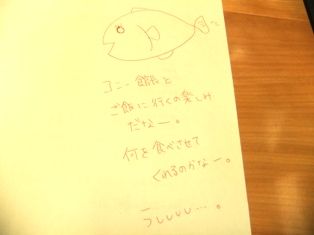 コニー館長と
ご飯に行くの楽しみ
だなー。
何を食べさせて
くれるのかなー。
うししし…。